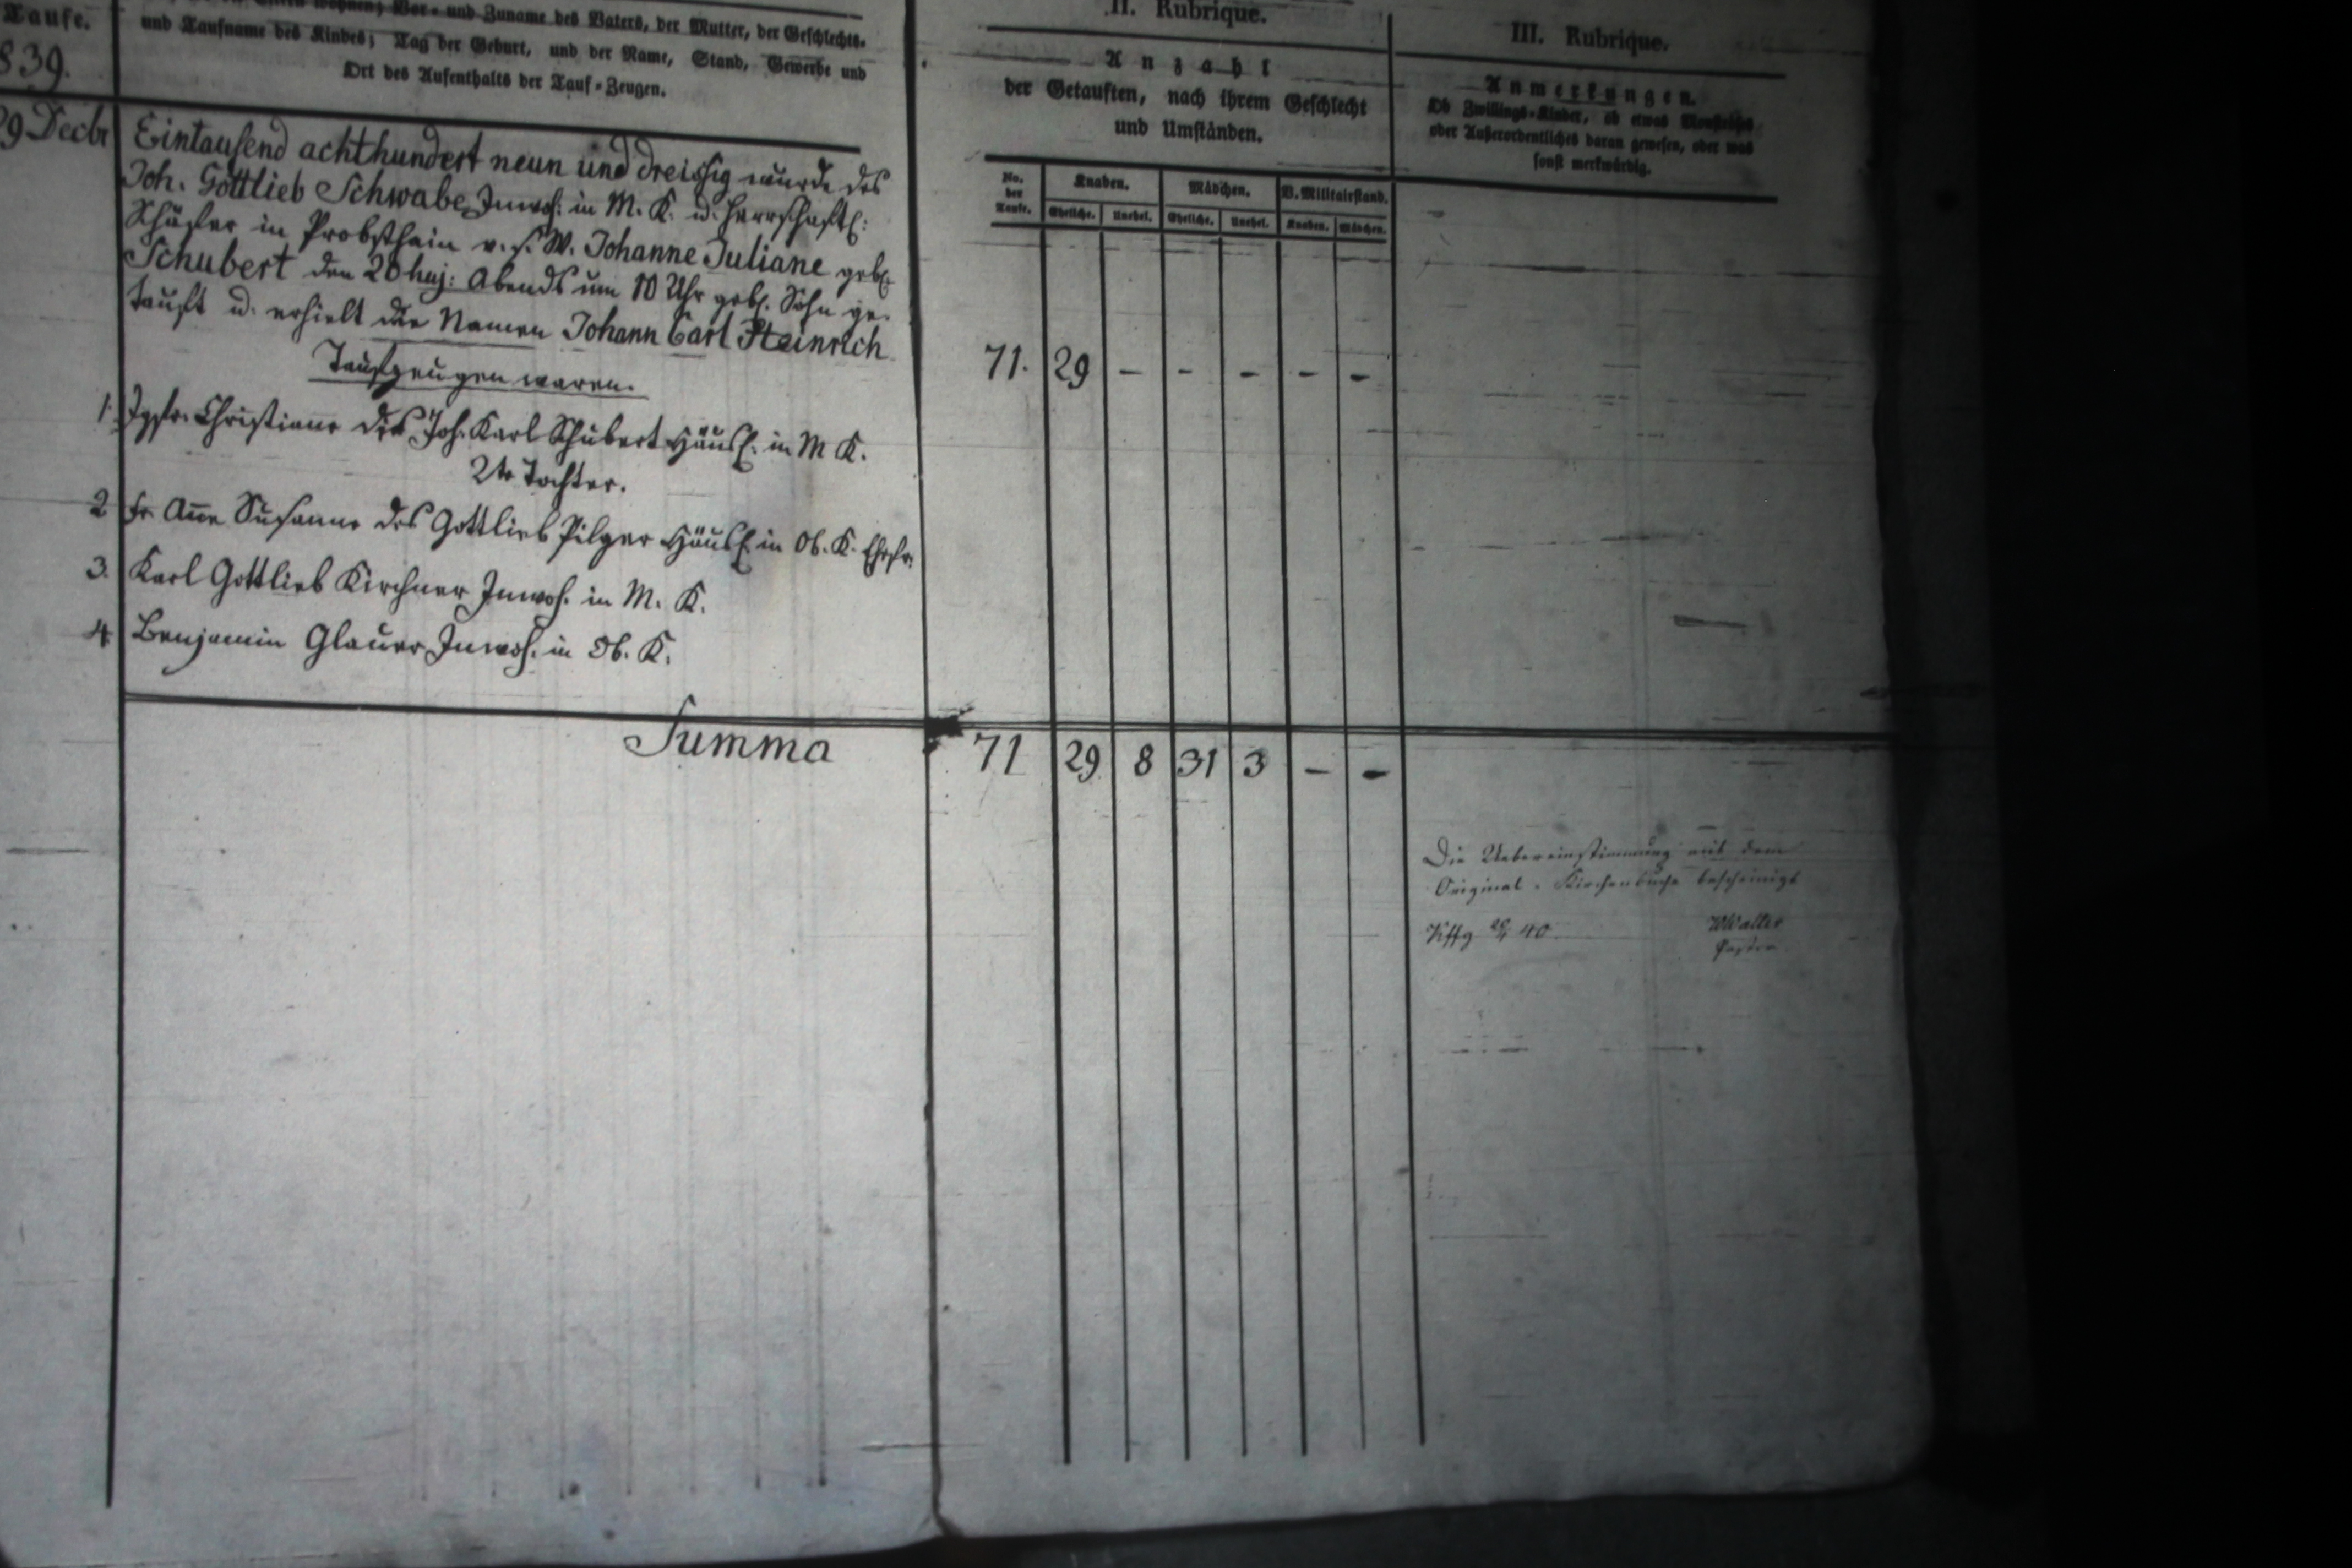 Taufe.
839.
Vor- und Zuname des Vaters, der Mutter, der Geschlechts-
und Taufname des Kindes; Tag der Geburt, und der Name, Stand, Gewerbe und
Ort des Aufenthalts der Tauf-Zeugen.
II. Rubrique.
Anzahl
der Getauften, nach ihrem Geschlecht
und Umständen.
No. der Taufe.
Knaben. Mädchen. V. Militairstand.
Eheliche. Unehel. Eheliche. Unehel. Knaben. Mädchen.
III. Rubrique.
Anmerkungen.
Ob Zwillings-Kinder, ob etwas
oder Außerordentliches daran gewesen, oder was
sonst merkwürdig.
29 Decbr
Eintausend achthundert neun und dreissig wurde des
Joh. Gottlieb Schwabe, Inwoh: in M. K. u. herrschaftl:
Schäfer in Probsthain v. s. W. Johanne Juliane geb.
Schubert den 20 huj: Abends um 10 Uhr geb. Sohn ge-
tauft u. erhielt die Namen Johann Carl Heinrich
Taufzeugen waren.
1. Jgfr. Christiane des Joh. Karl Schubert Häusl. in M K.
2te Tochter.
2 Fr. Anne Susanne des Gottlieb Pilger Häusl. in Ob. K. Ehefr.
3. Karl Gottlieb Kirchner Inwoh. in M. K.
4 Benjamin Glauer Inwoh. in Ob. K.
71. 29 - - - - -
Summa 71 29 8 31 3 - -
Die Uebereinstimmung mit dem
Original-Kirchenbuche bescheinigt
40 Waller
Pastor